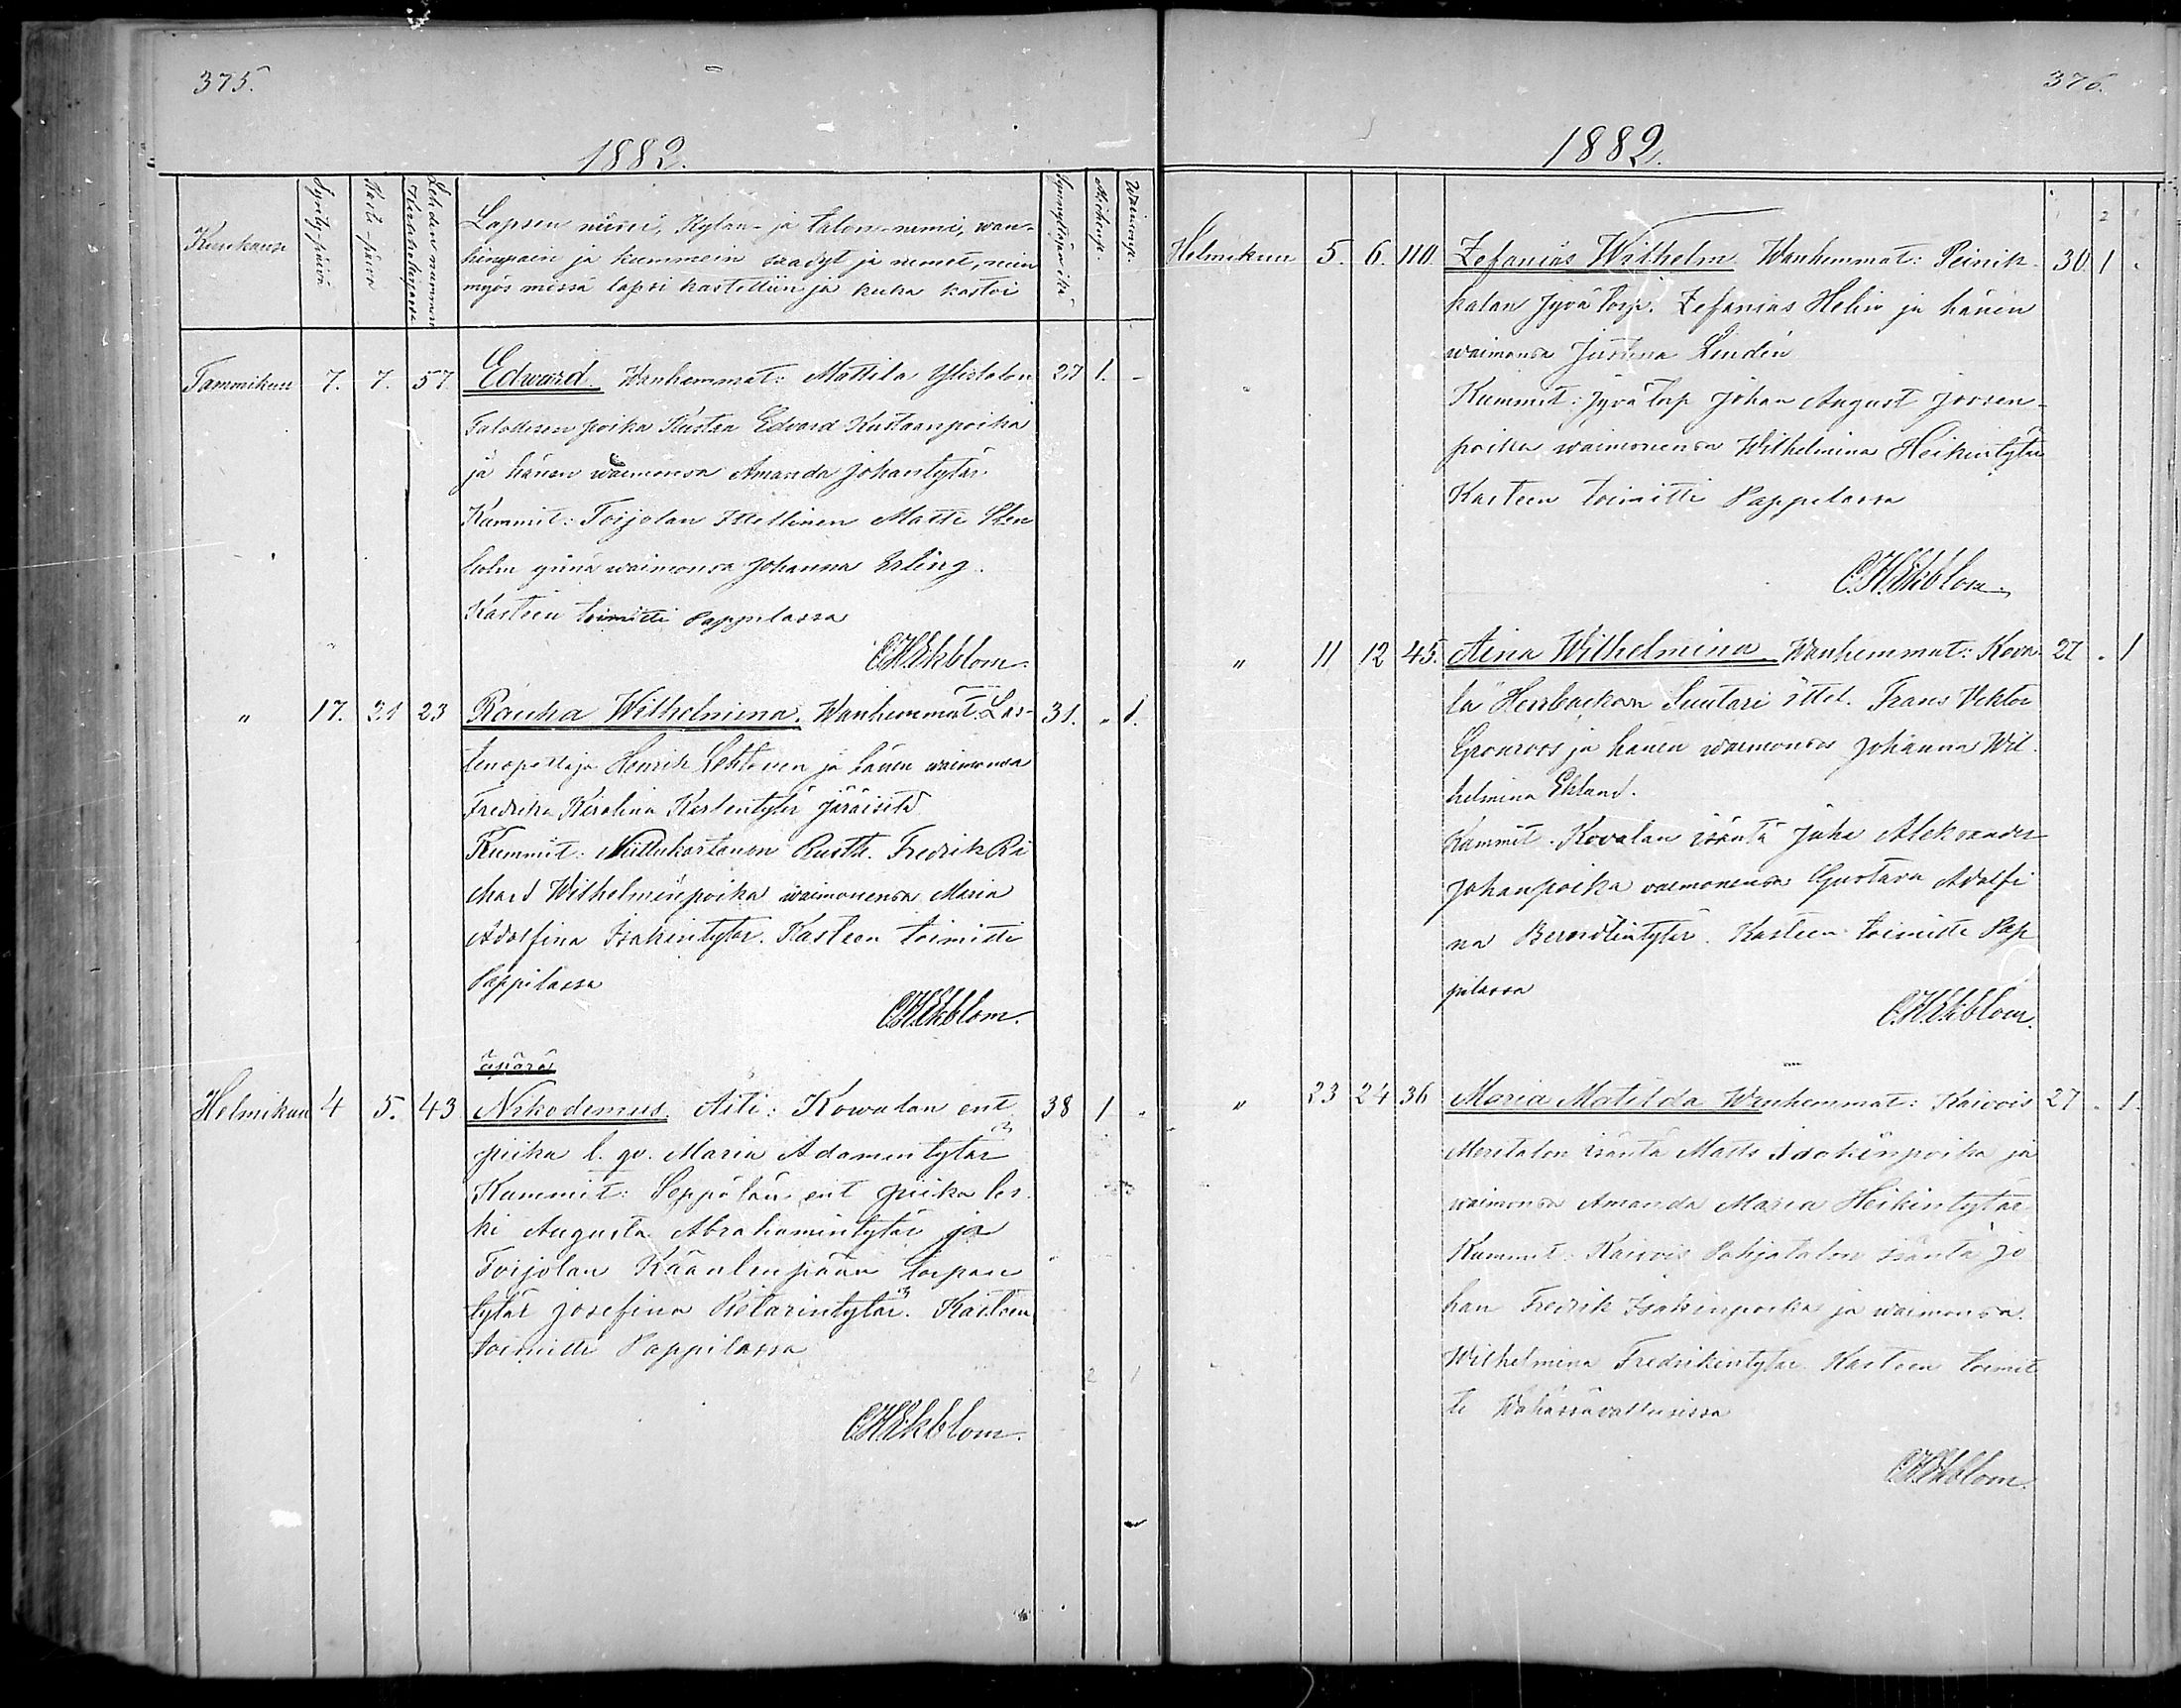 375.
1882.
Kuukausi
Synty-päivä
Kasto-päivä
Lehden nummero
Lapsen nimi, Kylän- ja talon-nimi, wan-
hempain ja kummein säädyt ja nimet, niin
myös missä lapsi kastettiin ja kuka kastoi
Synnyttäjän ikä
Miehenp.
Waimonp.
Tammikuu 7. 7. 57 Edward. Wanhemmat: Mattila Ylistalon 27 1. -
Talollisen poika Kustaa Edvard Kustaanpoika
ja hänen waimonsa Amanda Johantytär
Kummit: Torjolan Matti Sten
holm ynnä waimonsa Johanna Erling.
Kasteen toimitti Pappilassa
C.H.Ekblom.
" 17. 21 23 Rauha Wilhelmina. Wanhemmat: Las- 31. " 1.
tenopettaja Henrik Lehtonen ja hänen waimonsa
Fredrika Karolina Karlentytär
Kummit: Niittukartanon Rustt. Fredrik Ri
chard Wilhelminpoika waimonensa Maria
Adolfina Isakintytär. Kasteen toimitti
Pappilassa
C.H.Ekblom.
äpärä
Helmikuu 4 5. 43 Nikodemus. Äiti: Kowalan ent 38 1 "
piika l. qv. Maria Adamintytär
Kummit: Seppälän ent piika les-
ki Augusta Abrahamintytär ja
Torjolan Käänlenpään torpan
tytär Josefina Retarintytär. Kasteen
toimitti Pappilassa
2 1
C.H.Ekblom.
376.
1882.
Helmikuu 5. 6. 110. Zefanias Wilhelm Wanhemmat: Peinik- 30. 1 "
kalan Jyvä torp. Zefanias Helin ja hänen
waimonsa Justina Lindén
Kummit: Jyvä torp Johan August Joosen-
poika waimonensa Wilhelmina Heikintytär
Kasteen toimitti Pappilassa
C.H.Ekblom.
" 11 12 45. Aina Wilhelmina Wanhemmat: Kova- 27 " 1
la Herrbackan Suutari ittel. Frans Viktor
Grönroos ja hänen waimonsa Johanna Wil-
helmina Eklund.
Kummit. Kovalan isäntä Juha Aleksander
Johanpoika waimonensa Gustava Adolfi
na Berndtintytär. Kasteen toimitti Pap
pilassa
C.H.Ekblom.
" 23 24 36 Maria Matilda Wanhemmat: Kaivois 27 " 1.
Meritalon isäntä Matts Isakinpoika ja
waimonsa Amanda Maria Heikintytär
Kummit: Kaivois Pohjatalon isäntä Jo
han Fredrik Isakinpoika ja waimonsa
Wilhelmina Fredrikintytär Kasteen toimit
ti
C.H.Ekblom.